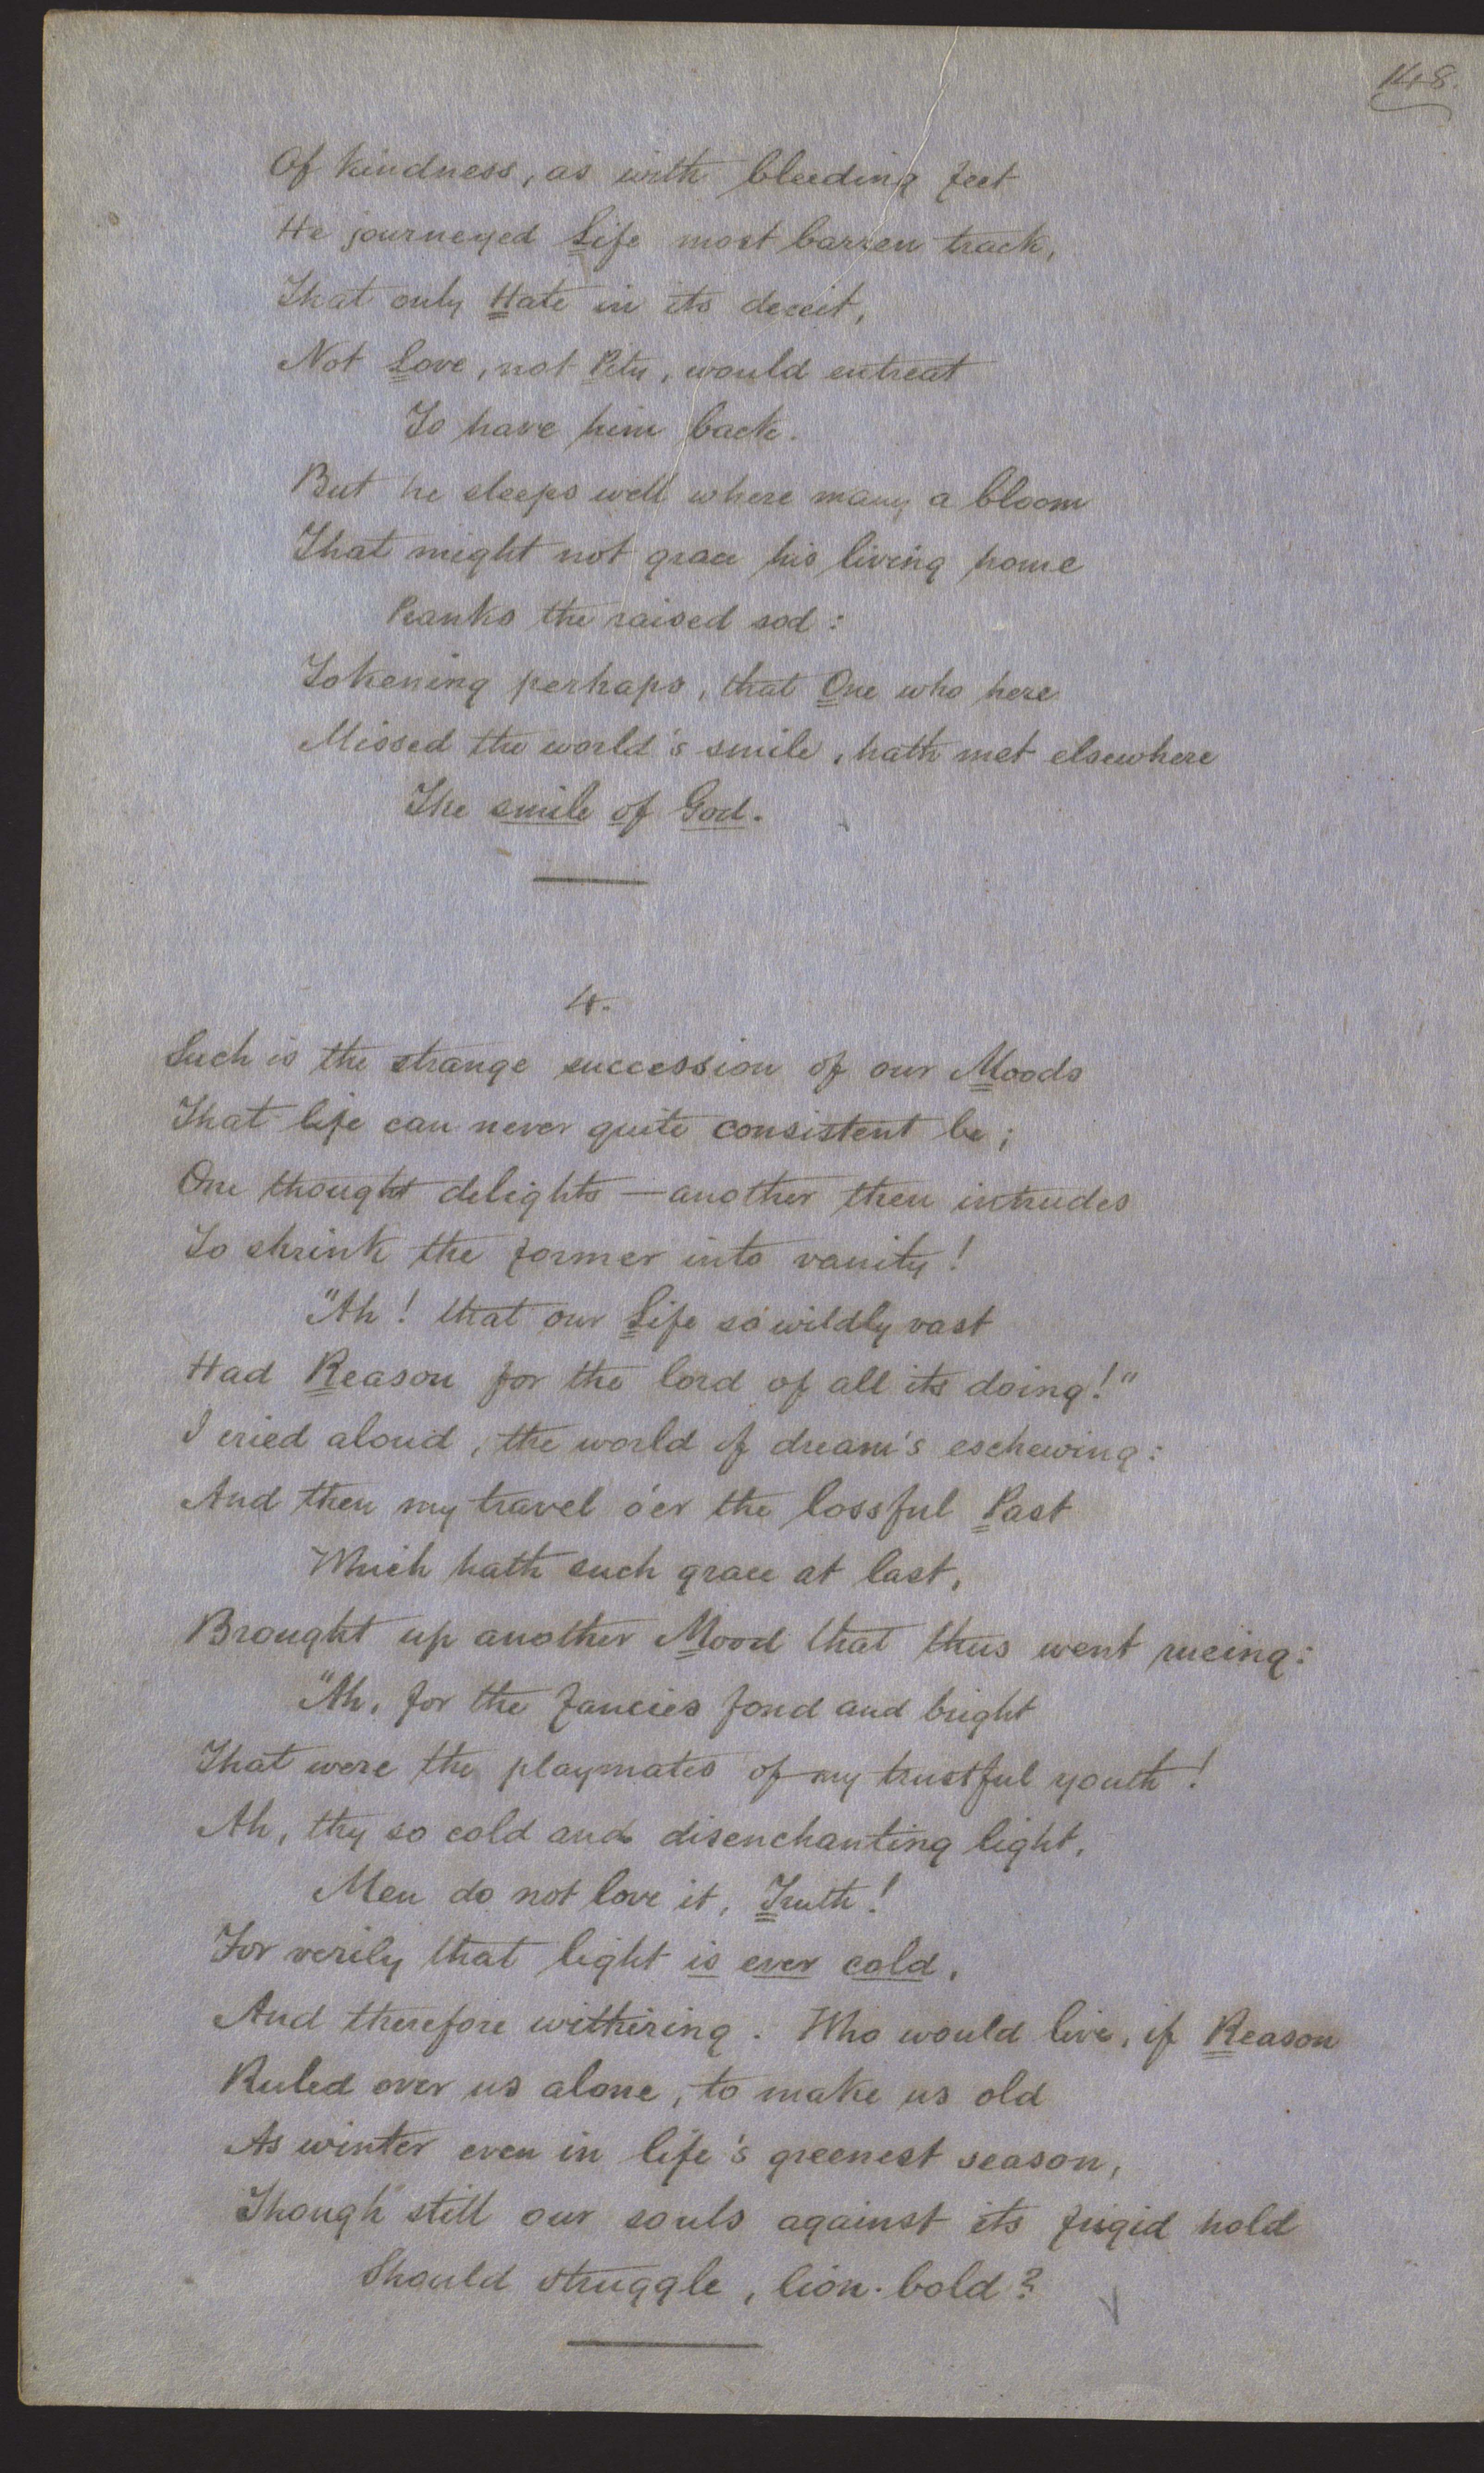 148.
Of kindness, as with bleeding feet
He journeyed Life most barren track,
That only Hate in its deceit,
Not Love, not Pity, would entreat
To have him back.
But he sleeps well where many a bloom
That might not grace his living home
Pranks the raised sod:
Tokening perhaps, that One who here
Missed the world's smile, hath met elsewhere
The smile of God.
4.
Such is the strange succession of our Moods
That life can never quite consistent be;
One thought delights — another then intrudes
To shrink the former into vanity!
"Ah! that our Life so wildly vast
Had Reason for the lord of all its doing!"
I cried aloud, the world of dream's eschewing:
And then my travel o'er the lossful Past
Which hath such grace at last,
Brought up another Mood that thus went rueing:
"Ah, for the fancies fond and bright
That were the playmates of my trustful youth!
Ah, thy so cold and disenchanting light,
Men do not love it, Truth!
For verily that light is ever cold,
And therefore withering. Who would live, if Reason
Ruled over us alone, to make us old
As winter even in life's greenest season,
Though still our souls against its frigid hold
Should struggle, lion-bold?